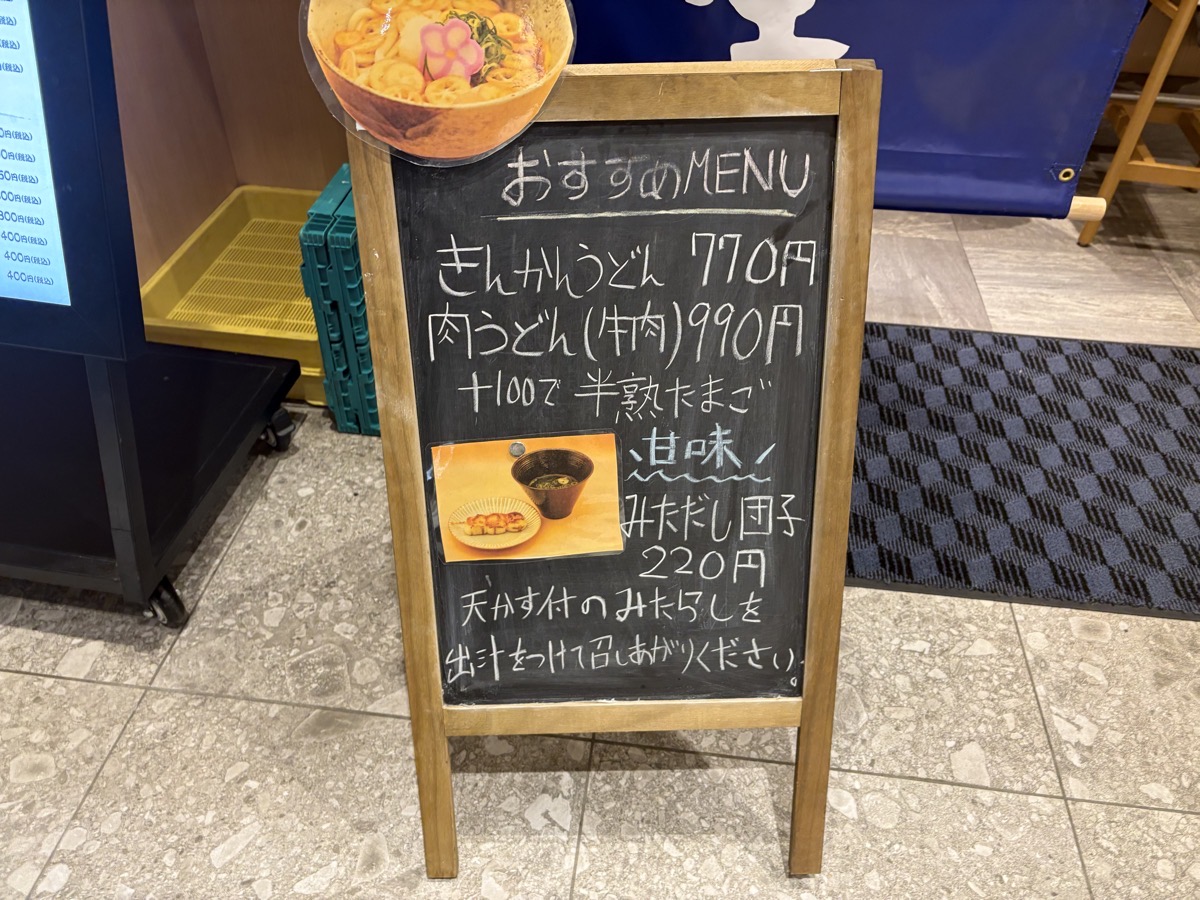 おすすめMENU
きんかんうどん 770円
肉うどん(牛肉)990円
+100で 半熟たまご
甘味
みただし団子
220円
天かす付のみたらしを
出汁をつけて召しあがりください。
0円(税込)
0円(税込)
50円(税込)
300円(税込)
300円(税込)
400円(税込)
400円(税込)
400円(税込)